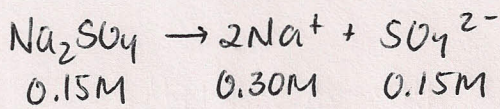 Na₂SO₄ → 2Na⁺ + SO₄²⁻
0.15M 0.30M 0.15M